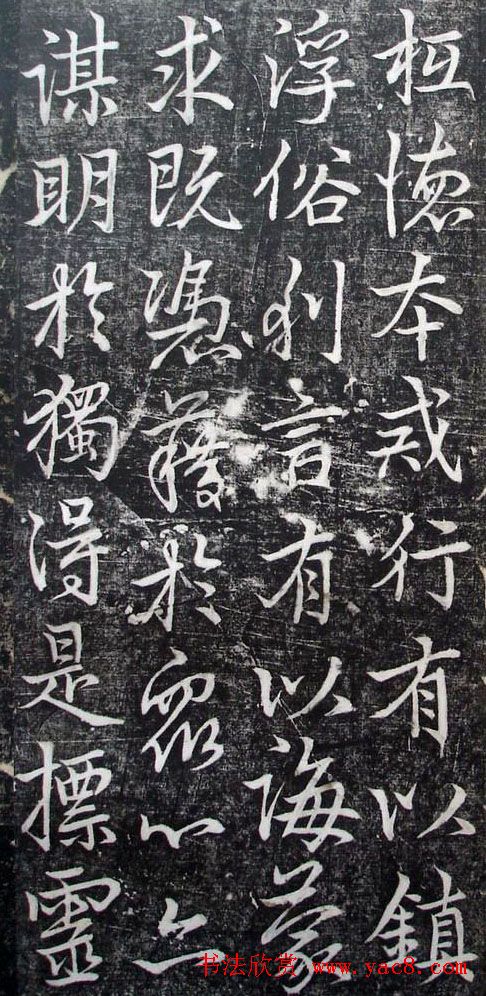 本戒行有以鎮
浮俗利言有以誨蒙
求既憑藉於眾心亦
謀明於獨得是標靈
书法欣赏 www.yac8.com